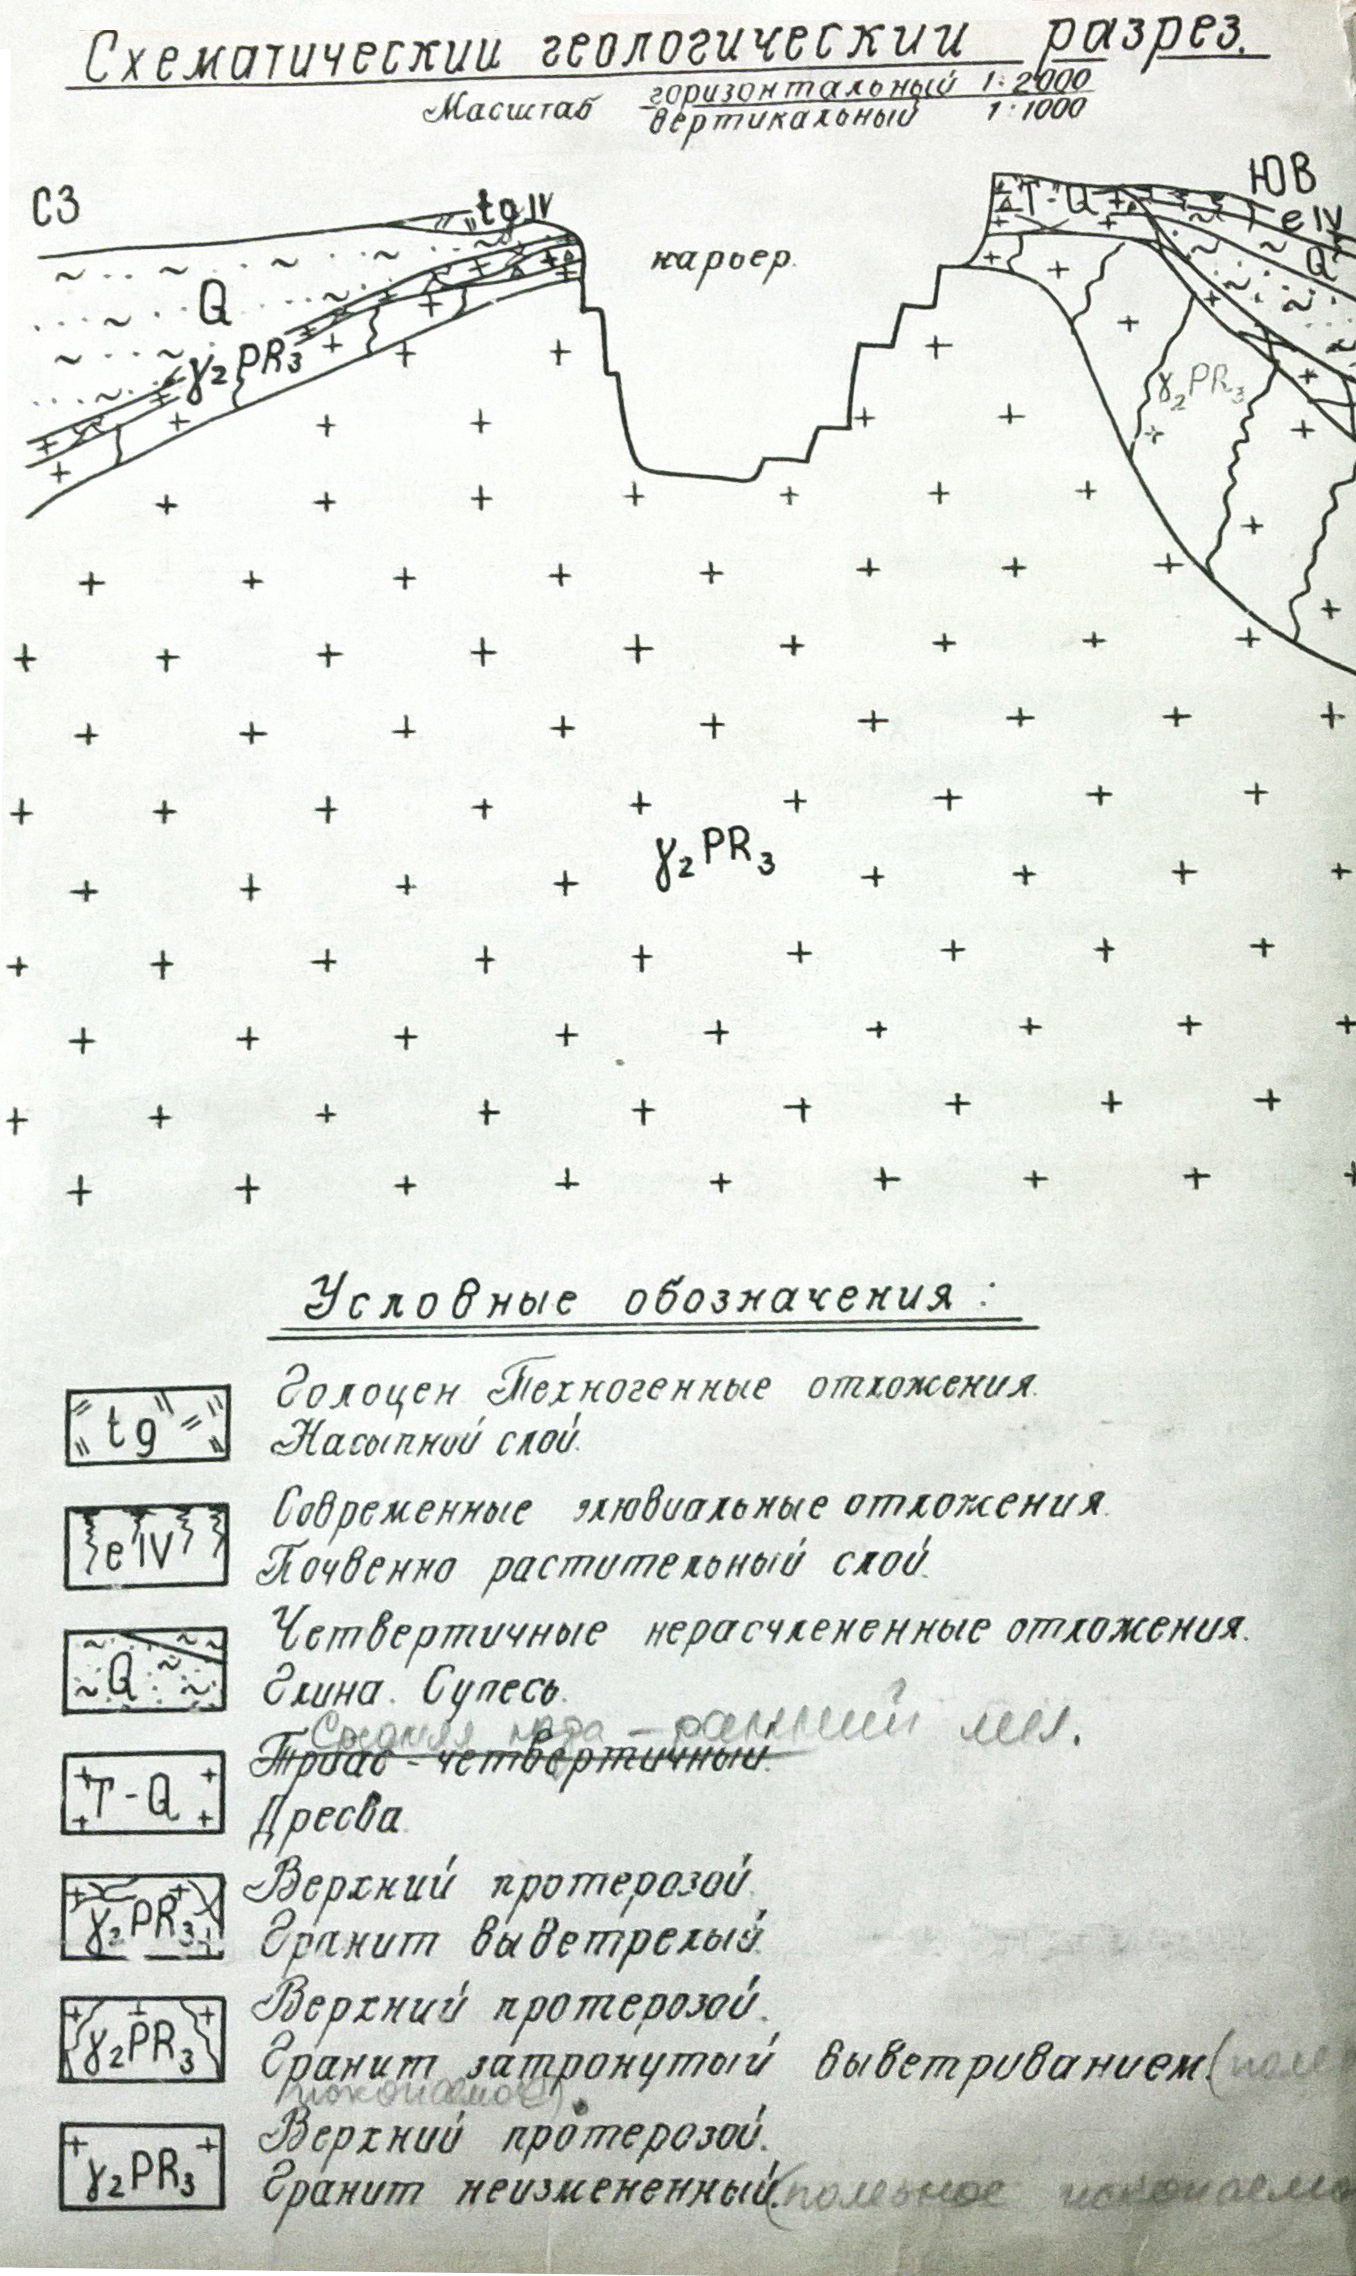 Схематический геологический разрез.
Масштаб горизонтальный 1:2000
вертикальный 1:1000
СЗ
ЮВ
tg IV
T-Q
e IV
карьер.
Q
Q
γ₂PR₃
γ₂PR₃
γ₂PR₃
Условные обозначения:
tg
Голоцен Техногенные отложения.
Насыпной слой.
e IV
Современные элювиальные отложения.
Почвенно растительный слой.
Q
Четвертичные нерасчлененные отложения.
Глина. Супесь.
Средняя юра - ранний мел.
T-Q
Триас-четвертичный.
Дресва.
γ₂PR₃
Верхний протерозой.
Гранит выветрелый.
γ₂PR₃
Верхний протерозой.
Гранит затронутый выветриванием. (
ископаемое)
γ₂PR₃
Верхний протерозой.
Гранит неизмененный. (полезное